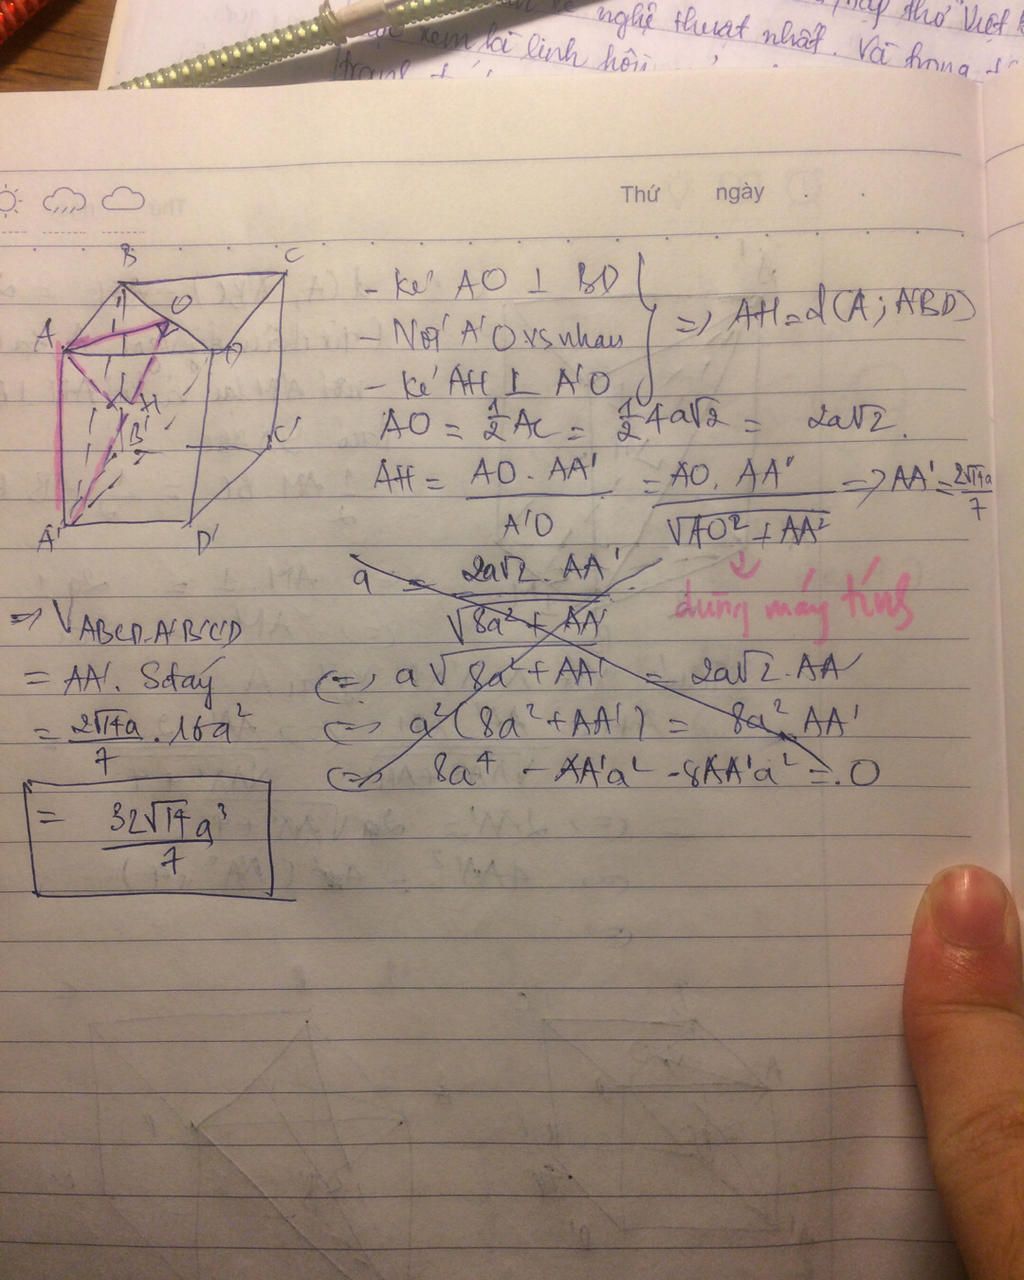 nghệ thuật nhất. Và trong
xem là linh hồn
Thứ ngày
B C
O
A D
H
B' C'
A' D'
- Kẻ AO ⊥ BD
- Nối A'O vs nhau
- Kẻ AH ⊥ A'O
=> AH = d(A; A'BD)
AO = 1/2 AC = 1/2 4a√2 = 2a√2.
AH = AO . AA' / A'O = AO . AA' / √AO² + AA'² => AA' = 2√14a / 7
dùng máy tính
a = 2a√2 . AA' / √8a² + AA'
<=> a√8a² + AA' = 2a√2 . AA'
<=> a² (8a² + AA') = 8a² AA'
<=> 8a⁴ - AA'a² - 8AA'a² = 0
=> V ABCD.A'B'C'D'
= AA' . Sđáy
= 2√14a / 7 . 16a²
= 32√14 a³ / 7